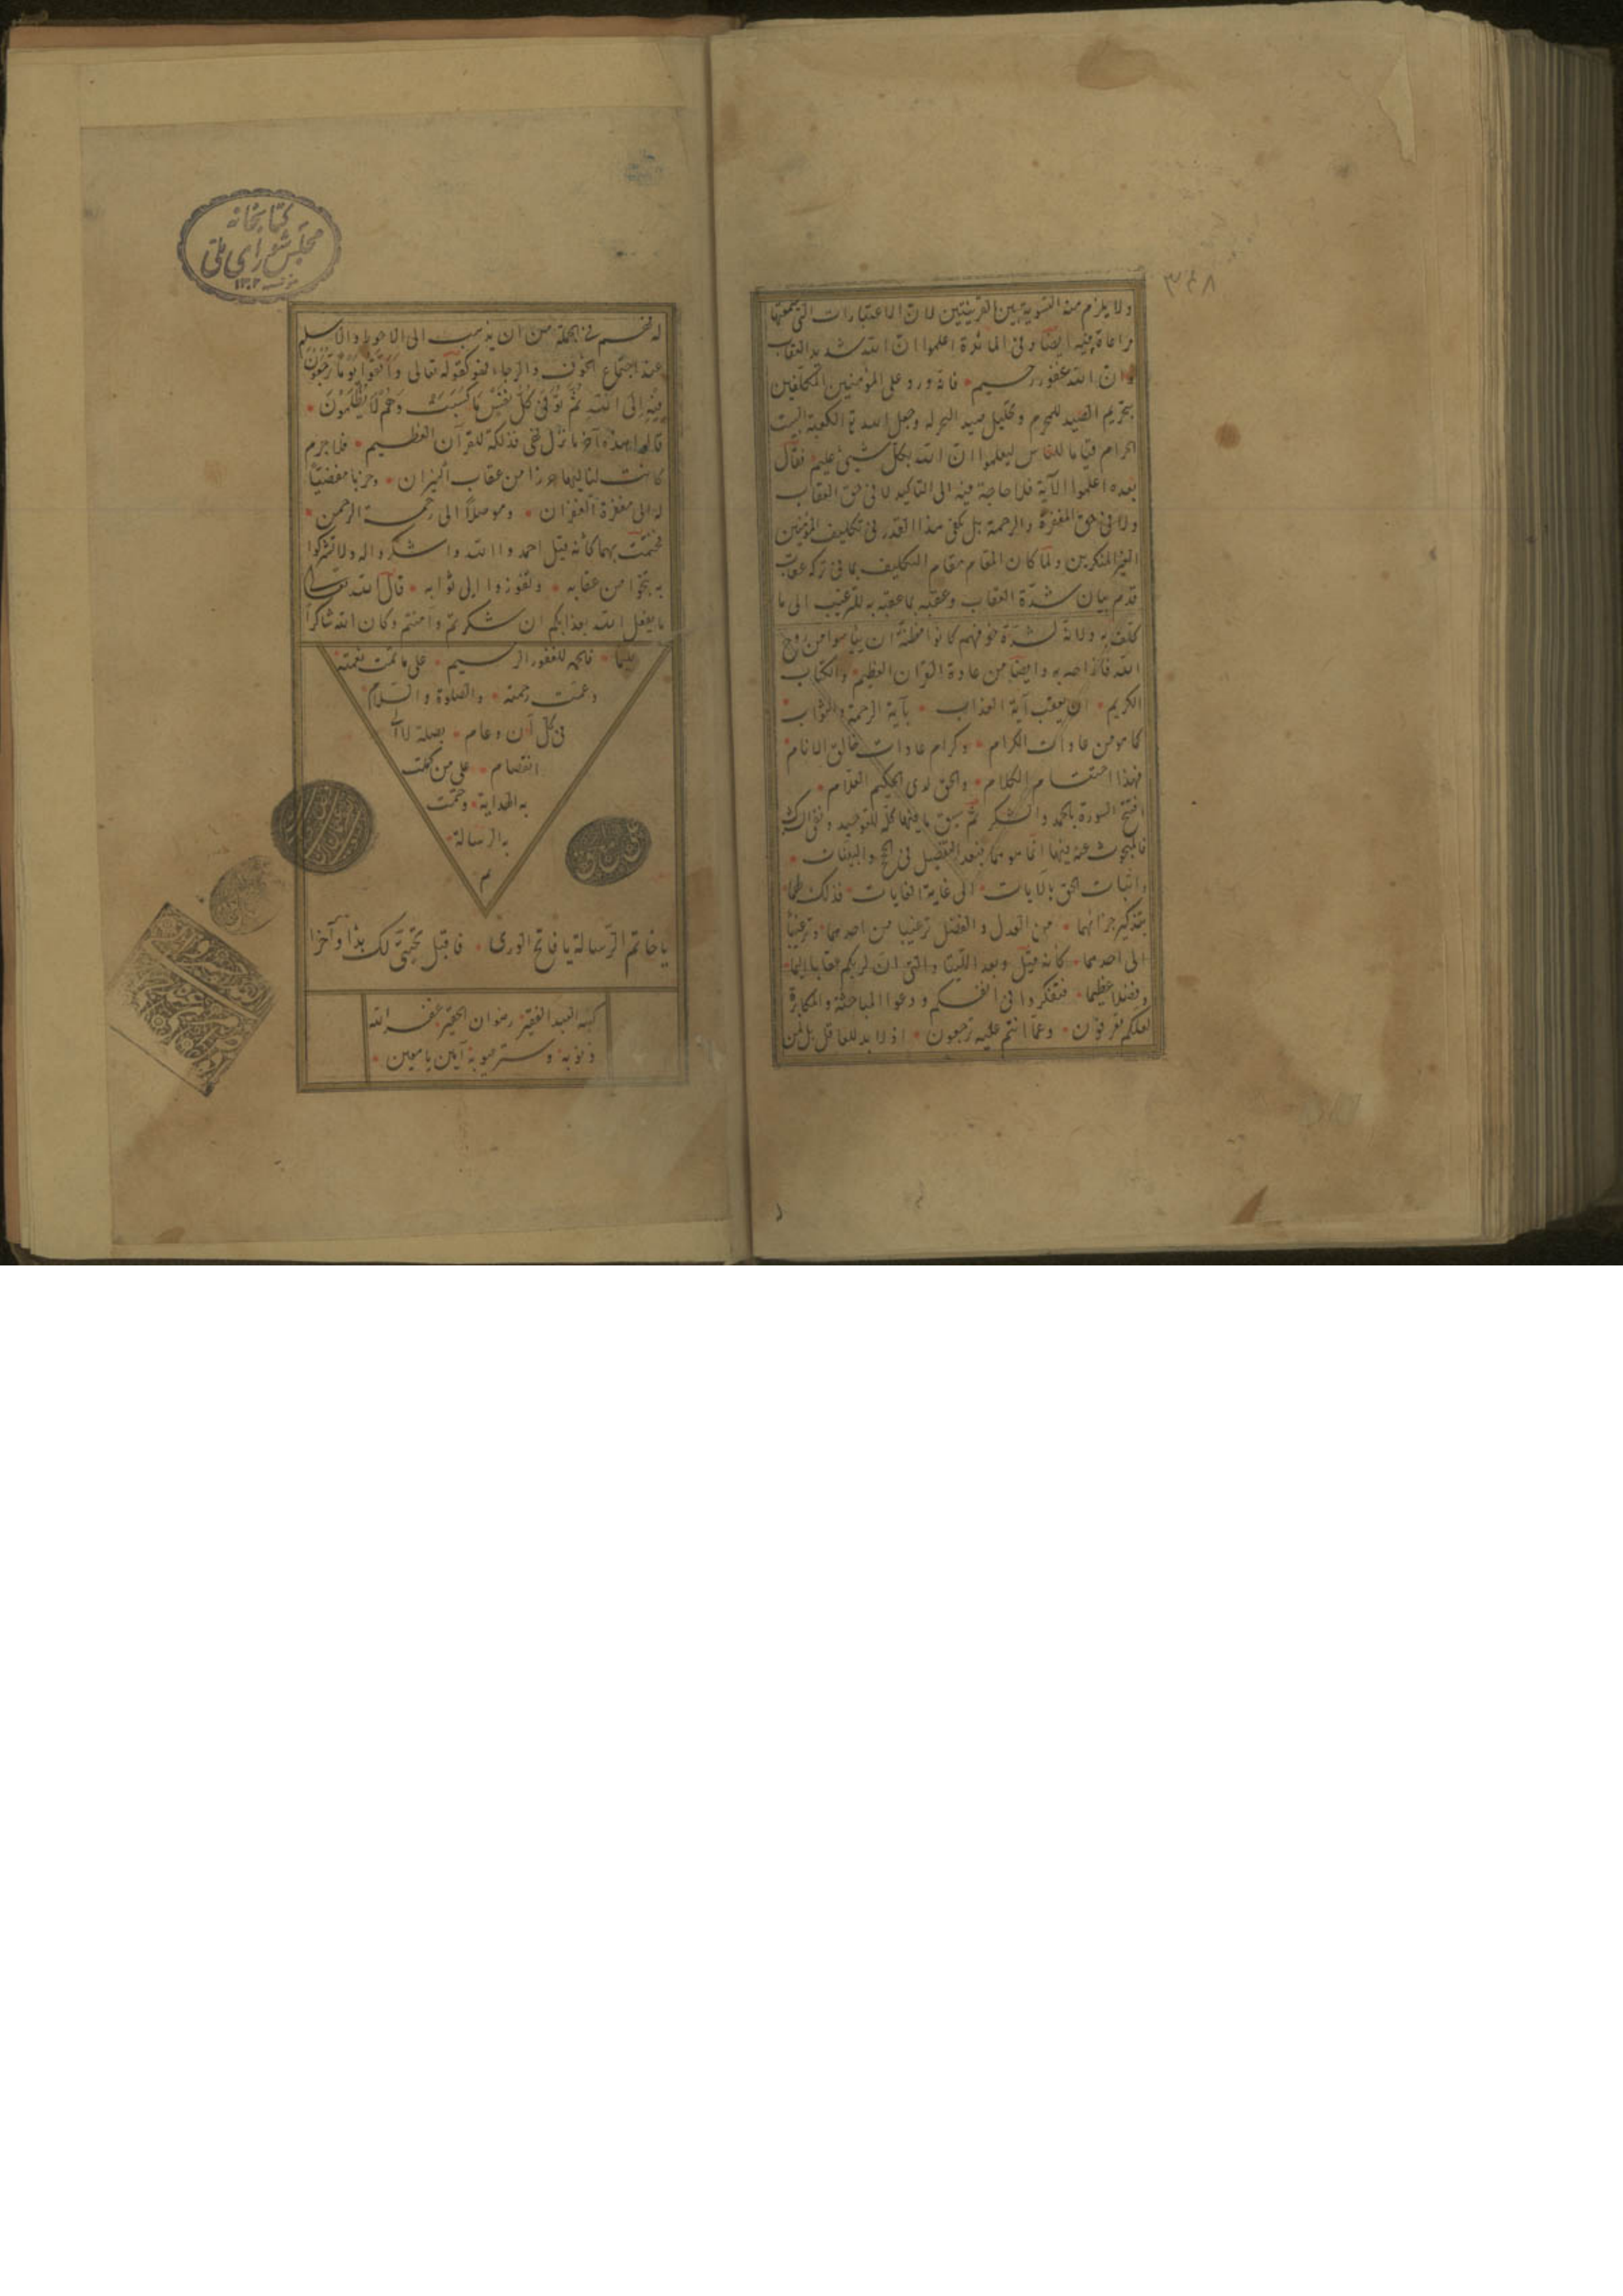 ولا يلزم منه التسوية بين القرينتين لان الاعتبارات التى سمعتها
مراعاة فيه ايضا وفى المائدة اعلموا ان الله شديد العقاب
وان الله غفور رحيم فانه ورد على المؤمنين المكلفين
بتحريم الصيد للمحرم وتحليل صيد البحر له وجعل الله الكعبة البيت
الحرام قياما للناس ليعلموا ان الله بكل شيئ عليم فقال
بعده اعلموا الآية فلا حاجة فيه الى التاكيد لا فى حق العقاب
ولا فى حق المغفرة والرحمة بل يكفى هذا القدر فى تكليف المؤمنين
الغير المنكرين ولما كان المقام مقام التكليف بما فى تركه عقاب
قدم بيان شدة العقاب وعقبه بما عقبه به للترغيب الى ما
كلف به ولانه لشدة خوفهم كانوا مظنة ان يياسوا من روح
الله وايضا من عادة القرآن العظيم والكتاب
الكريم ان يعقب آية العذاب بآية الرحمة والثواب
كما هو من عادات الكرام وكرام عادات خالق الانام
فهذا اختتام الكلام والحق لدى الحكيم العلام
افتتح السورة بالحمد والشكر ثم سيق ما فيها كله للتوحيد ونفى الشرك
فالمبحوث عنه فيها انما هو هما فبعد التفصيل فى الحجج والبينات
واثبات الحق بالآيات الى غاية الغايات
بتذكير جزائهما من العدل والفضل ترهيبا من احدهما وترغيبا
الى احدهما كانه قيل وبعد اللتيا والتى ان لربكم عقابا اليما
وفضلا عظيما فتفكروا فى انفسكم ودعوا المباحثة والمكابرة
وعما انتم عليه ترجعون اذ لا بد للعاقل بل لمن
له فهم فى الجملة من ان يذهب الى الاحوط والاسلم
عند اجتماع الخوف والرجاء فهو كقوله تعالى وَاتَّقُوا يَوْمًا تُرْجَعُونَ
فِيهِ إِلَى اللَّهِ ثُمَّ تُوَفَّى كُلُّ نَفْسٍ مَا كَسَبَتْ وَهُمْ لَا يُظْلَمُونَ
آخر ما نزل فهى فذلكة للقرآن العظيم فلا جرم
كانت من عقاب النيران وحزبا مفضيا
له الى مغفرة الغفران وموصلا الى رحمة الرحمن
فختمت بهما كانه قيل احمدوا الله واشكروا له ولا تشركوا
به تنجوا من عقابه وتفوزوا الى ثوابه قال الله تعالى
ما يفعل الله بعذابكم ان شكرتم وآمنتم وكان الله شاكرا
عليما فالحمد للغفور الرحيم على ما تمت نعمته
وعمت رحمته والصلوة والسلام
فى كل آن وعام بصلة لا لها
انفصام على من كملت
به الهداية وختمت
به الرسالة
م
يا خاتم الرسالة يا فاتح الورى فاقبل تحيتى لك بدأ وآخرا
كتبه العبد الفقير رضوان الحقير غفر الله
ذنوبه وستر عيوبه آمين يا معين
كتابخانه
مجلس شورای ملی
۱۳۰۲
۳۴۸